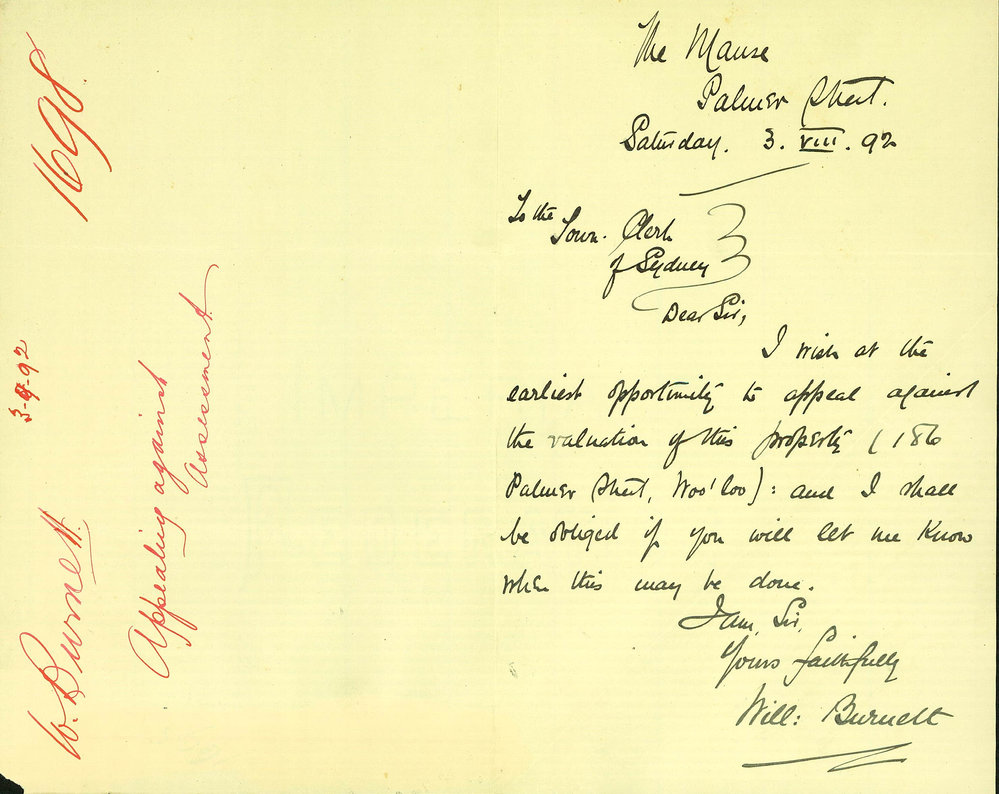 1698.
3-9-92
W. Burnett.
Appealing against
Assessment.
The Manse
Palmer Street.
Saturday. 3. VIII. 92
To the
Town. Clerk
of Sydney
Dear Sir,
I wish at the
earliest opportunity to appeal against
the valuation of this property (186
Palmer Street, Woo'loo): and I shall
be obliged if you will let me know
when this may be done.
I am, Sir,
Yours faithfully
Will: Burnett